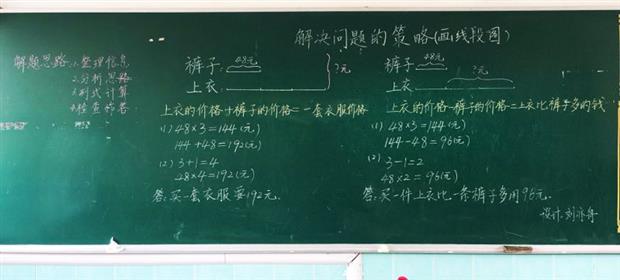 解决问题的策略(画线段图)
解题思路:1.整理信息
2.分析思路
3.列式计算
4.检查作答
裤子: 48元
上衣: ?元
上衣的价格+裤子的价格=一套衣服价格
(1) 48×3=144(元)
144+48=192(元)
(2) 3+1=4
48×4=192(元)
答:买一套衣服要192元.
裤子: 48元
上衣: ?元
上衣的价格-裤子的价格=上衣比裤子多的钱
(1) 48×3=144(元)
144-48=96(元)
(2) 3-1=2
48×2=96(元)
答:买一件上衣比一条裤子多用96元.
设计:刘亦舟